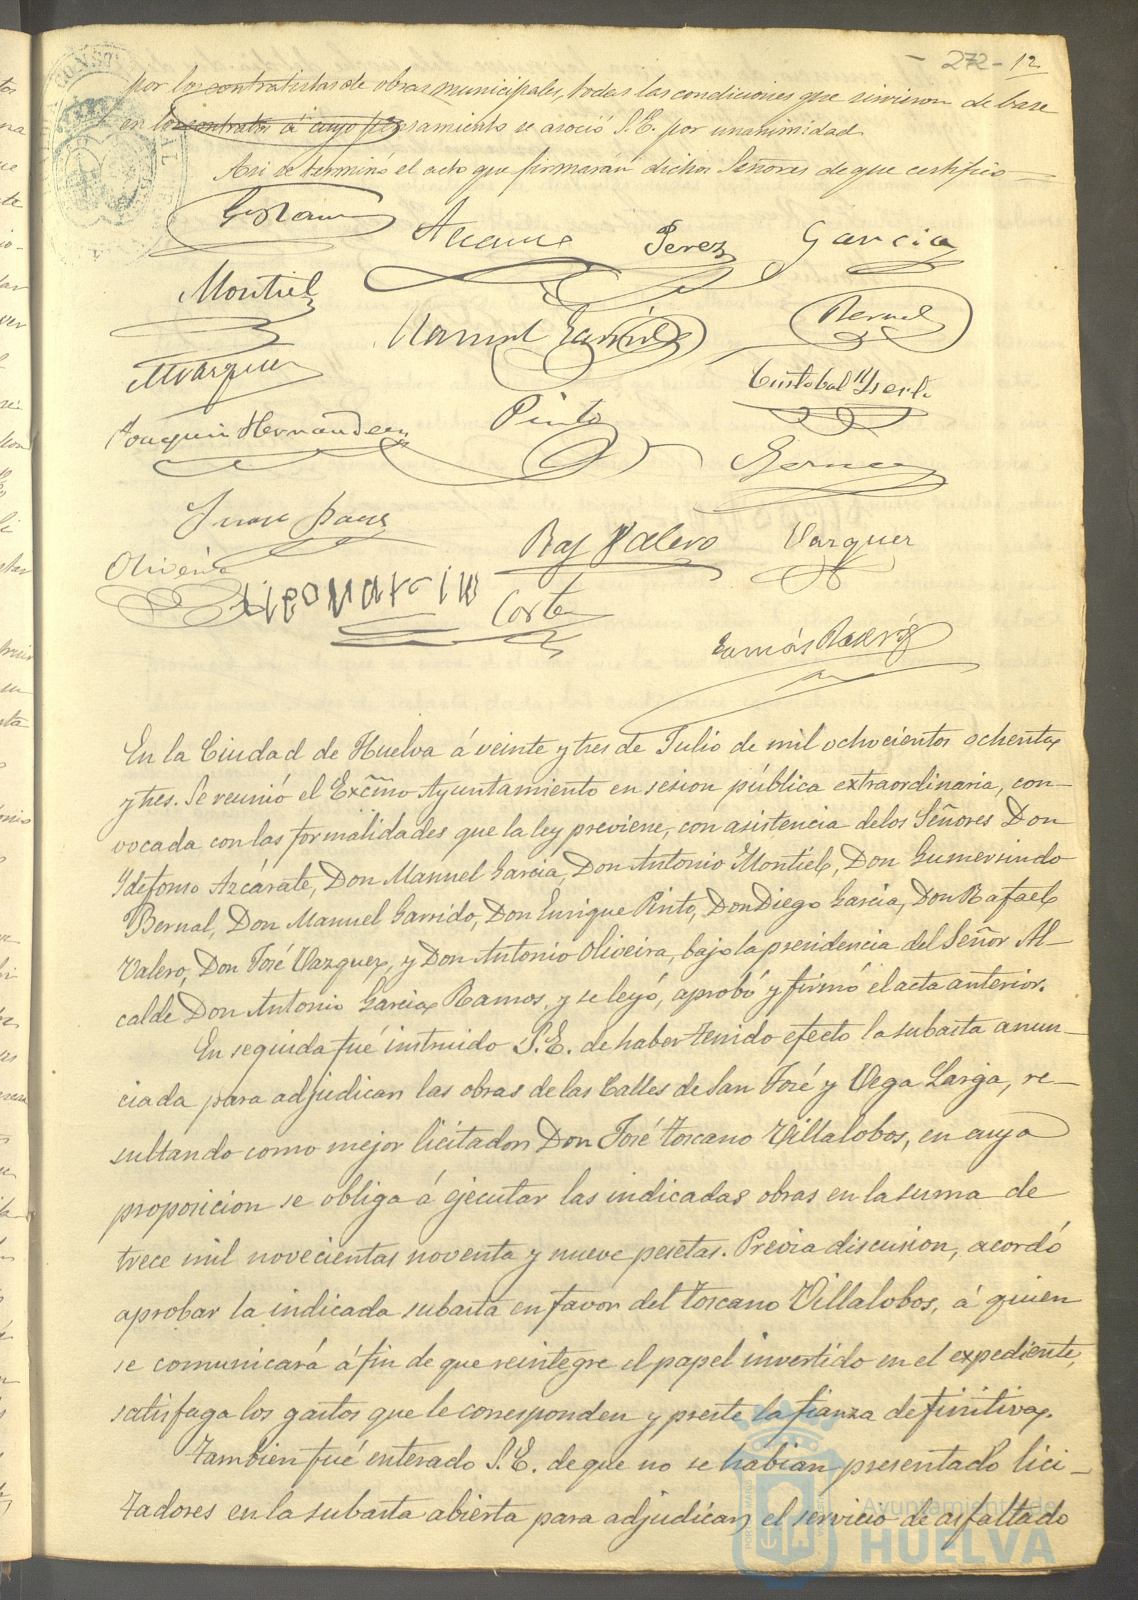 - 272 - 12
por los contratistas de obras municipales, todas las condiciones que sirvieron de base
en los contratos á cuyo pensamiento se asoció S.E. por unanimidad
Asi se terminó el acto que firmarán dichos Señores de que certifico
Perez Garcia
Montiel
Manuel Garrido Bernal
M Vazquez
Cristobal
Joaquin Hernandez Pinto
Raf Valero Vazquez
Oliveira Diego Garcia Corte
Tomás
En la Ciudad de Huelva á veinte y tres de Julio de mil ochocientos ochenta
y tres. Se reunió el Excmo Ayuntamiento en sesion pública extraordinaria, con-
vocada con las formalidades que la ley previene, con asistencia de los Señores Don
Ydefonso Azcárate, Don Manuel Garcia, Don Antonio Montiel, Don Gumersindo
Bernal, Don Manuel Garrido, Don Enrique Pinto, Don Diego Garcia, Don Rafael
Valero, Don José Vazquez, y Don Antonio Oliveira, bajo la presidencia del Señor Al-
calde Don Antonio Garcia Ramos, y se leyó, aprobó y firmó el acta anterior.
En seguida fué instruido S.E. de haber tenido efecto la subasta anun-
ciada para adjudicar las obras de las Calles de San José y Vega Larga, re-
sultando como mejor licitador Don José Toscano Villalobos, en cuya
proposicion se obliga á ejecutar las indicadas obras en la suma de
trece mil novecientas noventa y nueve pesetas. Previa discusion, acordó
aprobar la indicada subasta en favor del Toscano Villalobos, á quien
se comunicará á fin de que reintegre el papel invertido en el expediente,
satisfaga los gastos que le corresponden y preste la fianza definitiva.
Tambien fué enterado S.E. de que no se habian presentado lici-
tadores en la subasta abierta para adjudicar el servicio de asfaltado
Ayuntamiento de
HUELVA